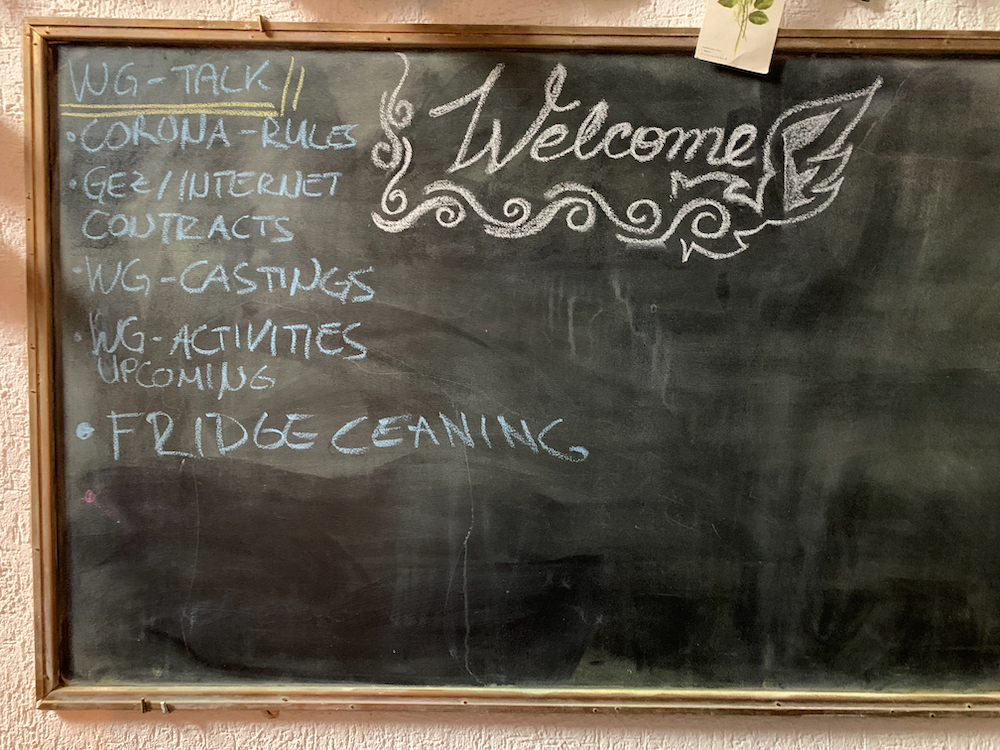 WG-TALK
• CORONA-RULES
• GEZ/INTERNET
CONTRACTS
• WG-CASTINGS
• WG-ACTIVITIES
UPCOMING
• FRIDGE CEANING
Welcome